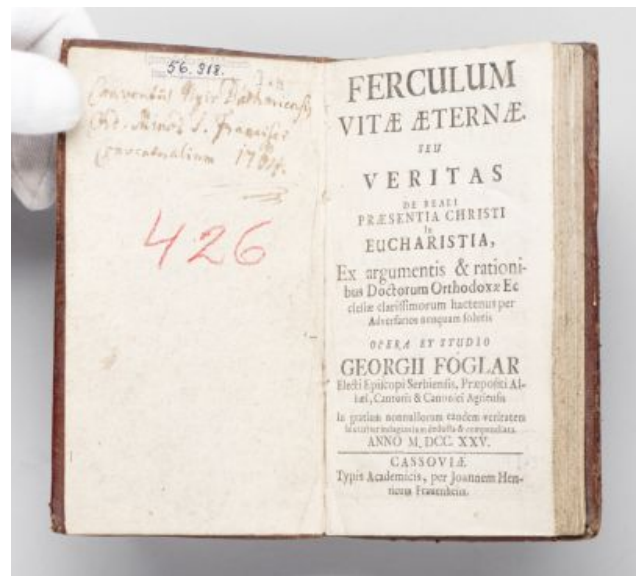 56.918.
Conventus Nyir Bathoriensis
Ord. Minor S. Francisci
Conventualium
426
FERCULUM
VITÆ ÆTERNÆ.
SEU
VERITAS
DE REALI
PRÆSENTIA CHRISTI
In
EUCHARISTIA,
Ex argumentis & rationi-
bus Doctorum Orthodoxæ Ec
clesiæ clarissimorum hactenus per
Adversarios nusquam solutis
OPERA ET STUDIO
GEORGII FOGLAR
Electi Episcopi Serbiensis, Præpositi Al-
bæl, Cantoris & Canonici Agriensis
In gratiam nonnullorum eandem veritatem
& compendiata
ANNO M. DCC. XXV.
CASSOVIÆ
Typis Academicis, per Joannem Hen-
ricum Frauenheim.